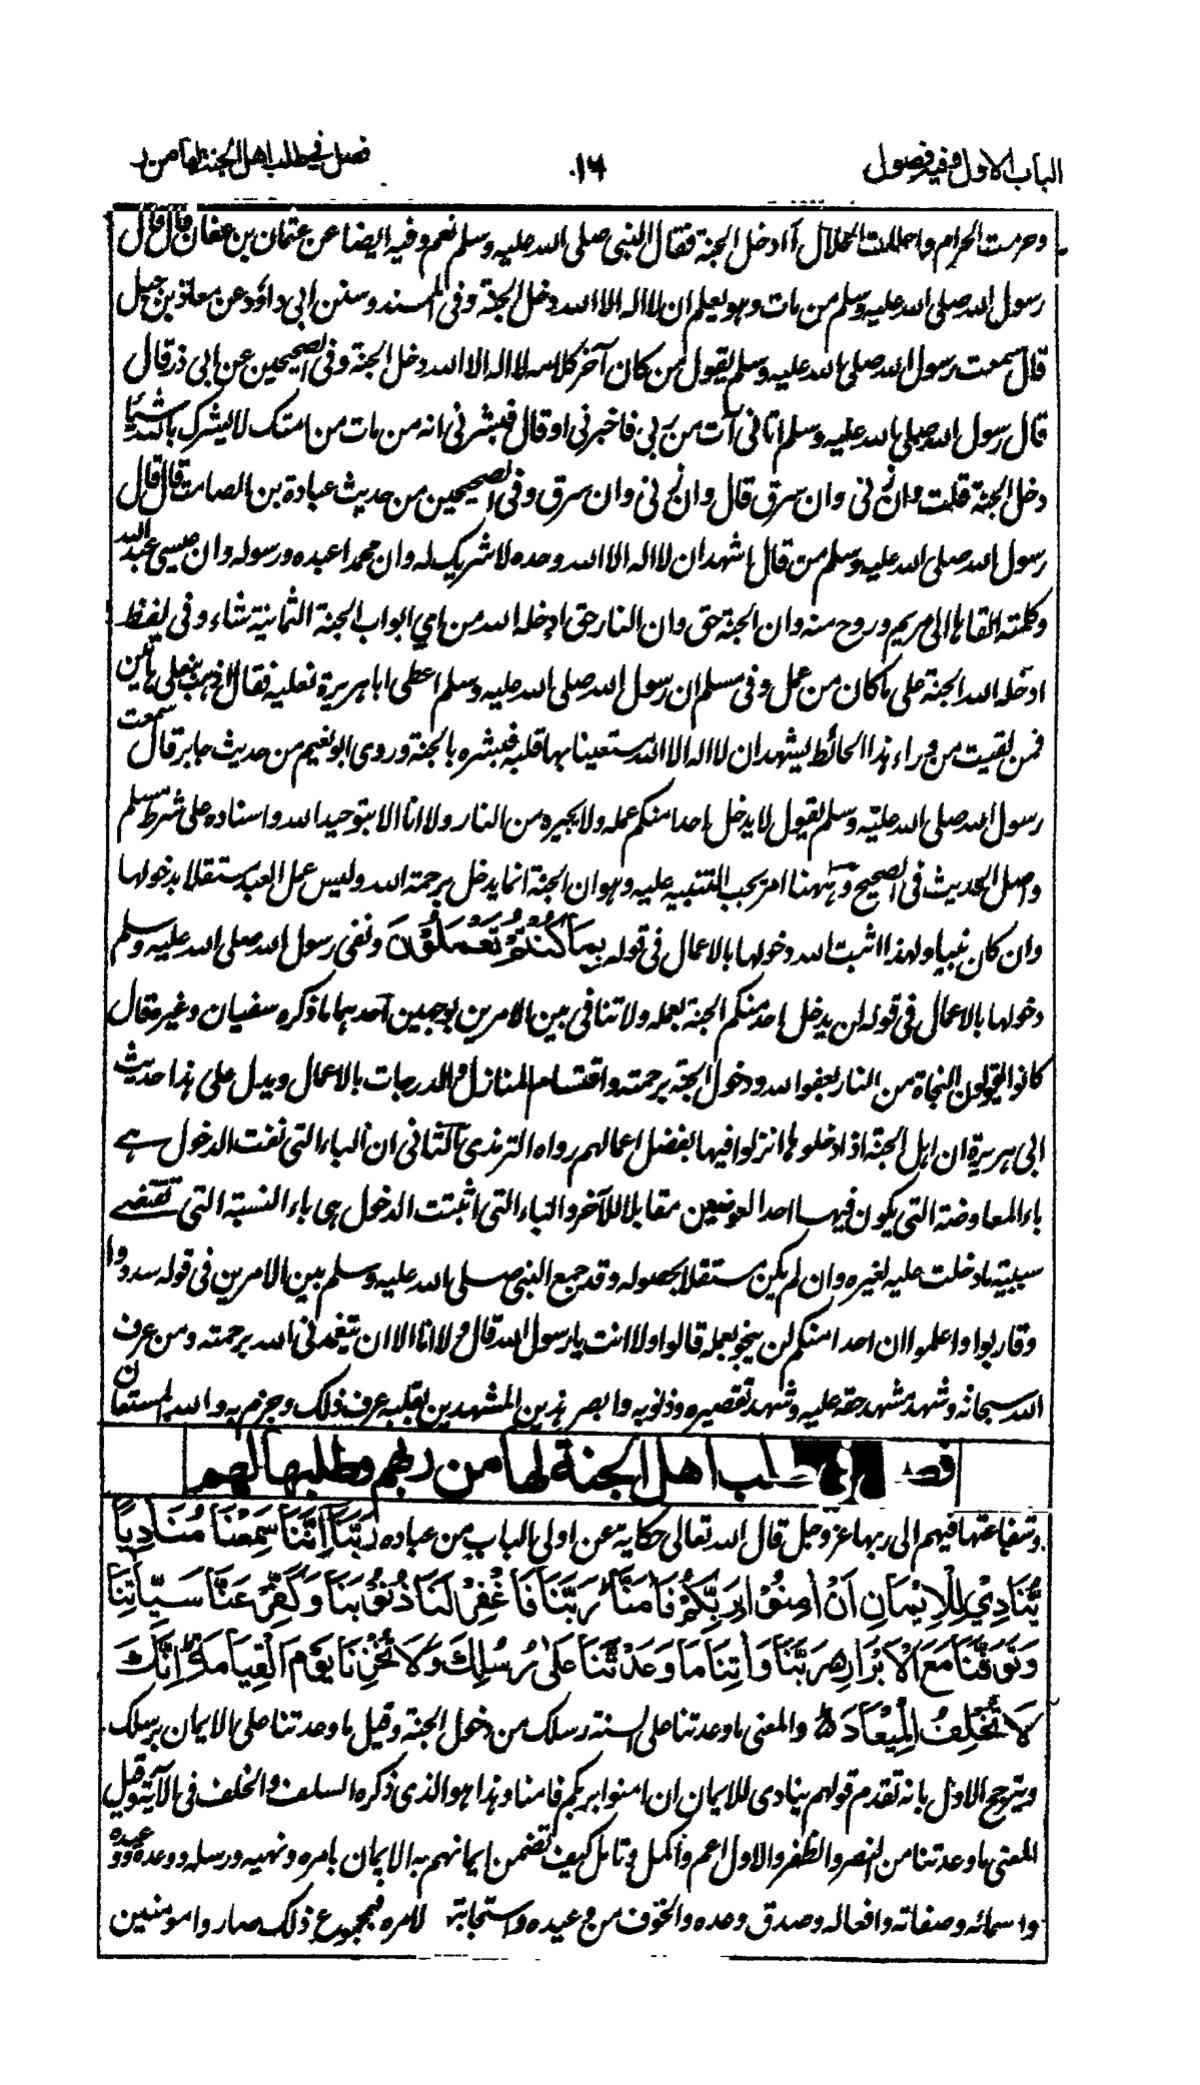 الباب الاول وفيه فصول
١٦
فصل في طلب اهل الجنة لها من ر
وحرمت الحرام واحللت الحلال أادخل الجنة فقال النبى صلى الله عليه وسلم نعم وفيه ايضا عن عثمان بن عفان قال قال
رسول الله صلى الله عليه وسلم من مات وهو يعلم ان لا اله الا الله دخل الجنة وفى المسند وسنن ابى داؤد عن معاذ بن جبل
قال سمعت رسول الله صلى الله عليه وسلم يقول من كان آخر كلامه لا اله الا الله دخل الجنة وفى الصحيحين عن ابى ذر قال
قال رسول الله صلى الله عليه وسلم اتانى آت من ربى فاخبرنى او قال فبشرنى انه من مات من امتك لا يشرك بالله شيئا
دخل الجنة قلت وان زنى وان سرق قال وان زنى وان سرق وفى الصحيحين من حديث عبادة بن الصامت قال قال
رسول الله صلى الله عليه وسلم من قال اشهد ان لا اله الا الله وحده لا شريك له وان محمدا عبده ورسوله وان عيسى عبد الله
وكلمته القاها الى مريم وروح منه وان الجنة حق وان النار حق ادخله الله من اى ابواب الجنة الثمانية شاء وفى لفظ
ادخله الله الجنة على ما كان من عمل وفى مسلم ان رسول الله صلى الله عليه وسلم اعطى ابا هريرة نعليه فقال اذهب بنعلى هاتين
فمن لقيت من وراء هذا الحائط يشهد ان لا اله الا الله مستيقنا بها قلبه فبشره بالجنة وروى ابو نعيم من حديث جابر قال سمعت
رسول الله صلى الله عليه وسلم يقول لا يدخل احدا منكم عمله ولا يجيره من النار ولا انا الا بتوحيد الله واسناده على شرط مسلم
واصل الحديث فى الصحيح وههنا امر يجب التنبيه عليه وهو ان الجنة انما يدخل برحمة الله وليس عمل العبد مستقلا بدخولها
وان كان سببا ولهذا اثبت الله دخولها بالاعمال فى قوله بِمَا كُنْتُمْ تَعْمَلُوْنَ ونفى رسول الله صلى الله عليه وسلم
دخولها بالاعمال فى قوله لن يدخل احد منكم الجنة بعمله ولا تنافى بين الامرين لوجهين احدهما ما ذكره سفيان وغيره قال
كانوا يقولون النجاة من النار بعفو الله ودخول الجنة برحمته واقتسام المنازل والدرجات بالاعمال ويدل على هذا حديث
ابى هريرة ان اهل الجنة اذا دخلوها نزلوا فيها بفضل اعمالهم رواه الترمذى الثانى ان الباء التى نفت الدخول هے
باء المعاوضة التى يكون فيها احد العوضين مقابلا للآخر والباء التى اثبتت الدخول هى باء النسبة التى تقتضے
سببية ما دخلت عليه لغيره وان لم يكن مستقلا بحصوله وقد جمع النبى صلى الله عليه وسلم بين الامرين فى قوله سددوا
وقاربوا واعلموا ان احدا منكم لن ينجو بعمله قالوا ولا انت يا رسول الله قال ولا انا الا ان يتغمدنى الله برحمته ومن عرف
الله سبحانه وشهد مشهد حقه عليه وشهد تقصيره وذنوبه وابصر هذين المشهدين بقلبه عرف ذلك وجزم به والله المستعان
فصل في طلب اهل الجنة لها من ربهم وطلبها لهم
وشفاعتها فيهم الى ربها عز وجل قال الله تعالى حكاية عن اولى الباب من عباده رَبَّنَا اِنَّنَا سَمِعْنَا مُنَادِيًا
يُّنَادِيْ لِلْاِيْمَانِ اَنْ اٰمِنُوْا بِرَبِّكُمْ فَاٰمَنَّا رَبَّنَا فَاغْفِرْ لَنَا ذُنُوْبَنَا وَكَفِّرْ عَنَّا سَيِّاٰتِنَا
وَتَوَفَّنَا مَعَ الْاَبْرَارِ رَبَّنَا وَاٰتِنَا مَا وَعَدْتَّنَا عَلٰى رُسُلِكَ وَلَا تُخْزِنَا يَوْمَ الْقِيَامَةِ اِنَّكَ
لَا تُخْلِفُ الْمِيْعَادَ والمعنى ما وعدتنا على السنة رسلك من دخول الجنة وقيل ما وعدتنا على الايمان برسلك
ويترجح الاول بانه تقدم قولهم ينادى للايمان ان امنوا بربكم فامنا وهذا هو الذى ذكره السلف والخلف فى الآية وقيل
المعنى ما وعدتنا من النصر والظفر والاول اعم واكمل وتامل كيف تضمن ايمانهم به الايمان بامره ونهيه ورسله ووعده ووعيده
واسمائه وصفاته وافعاله وصدق وعده والخوف من وعيده واستجابة لامره فبمجموع ذلك صاروا مومنين